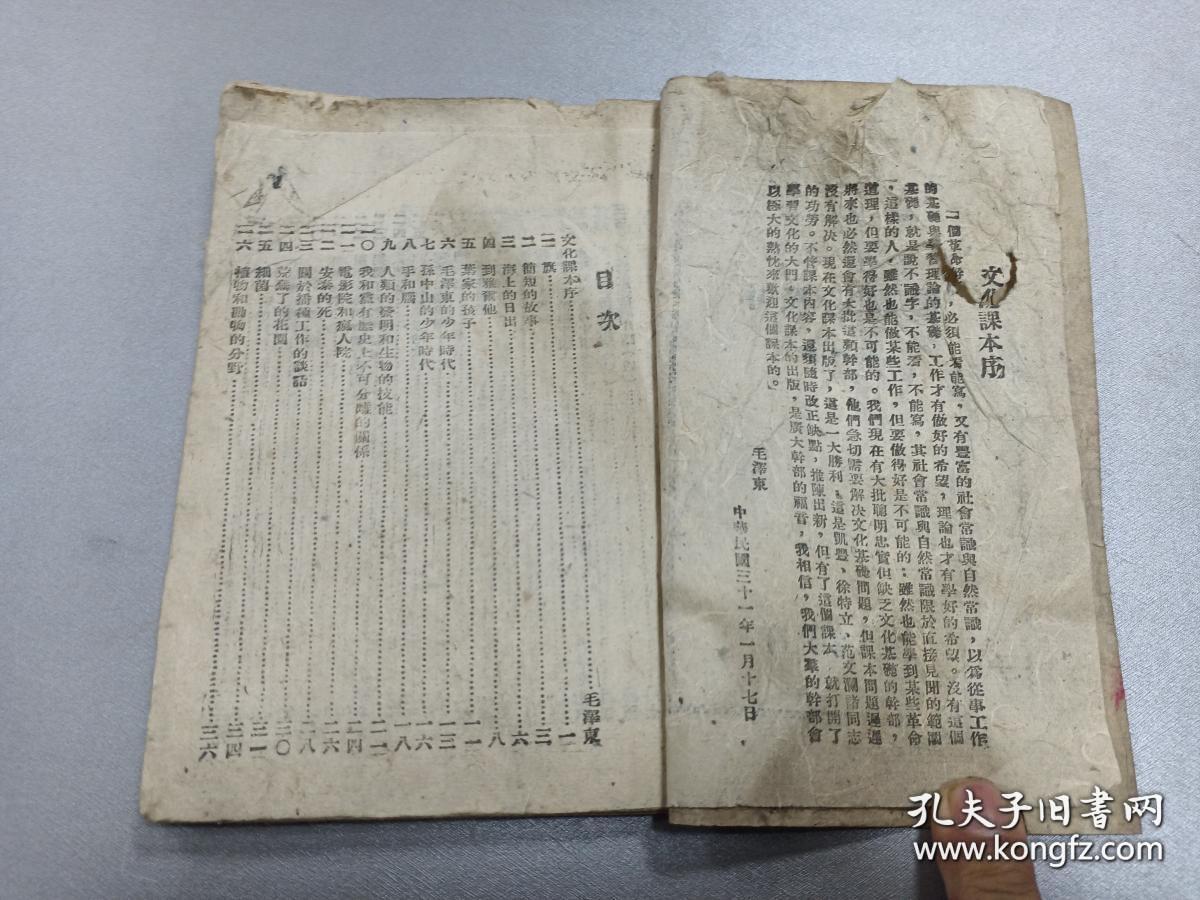 文化課本序
一個革命幹部,必須能看能寫,又有豐富的社會常識與自然常識,以爲從事工作
的基礎與學習理論的基礎,工作才有做好的希望,理論也才有學好的希望。沒有這個
基礎,就是說不識字,不能看,不能寫,其社會常識與自然常識限於直接見聞的範圍
,這樣的人,雖然也能做某些工作,但要做得好是不可能的;雖然也能學到某些革命
道理,但要學得好也是不可能的。我們現在有大批聰明忠實但缺乏文化基礎的幹部,
將來也必然還會有大批這類幹部,他們急切需要解決文化基礎問題,但課本問題遲遲
沒有解決。現在文化課本出版了,這是一大勝利;這是凱豐、徐特立、范文瀾諸同志
的功勞。不管課本內容,還須隨時改正缺點,推陳出新,但有了這個課本,就打開了
學習文化的大門。文化課本的出版,是廣大幹部的福音,我相信,我們大羣的幹部會
以極大的熱忱來歡迎這個課本的。
毛澤東
中華民國三十一年一月十七日,
目次
文化課本序 毛澤東 一
一 旗 一
二 簡短的故事 三
三 海上的日出 六
四 到雅爾他 八
五 葉家的孩子 一一
六 毛澤東的少年時代 一三
七 孫中山的少年時代 一六
八 手和腦 一八
九 人類的發明和生物的技能 二一
一〇 我和黨有歷史上不可分離的關係 二四
一一 電影院和瘋人院 二五
一二 安泰的死 二六
一三 關於播種工作的談話 二八
一四 荒蕪了的花園 三〇
一五 細菌 三二
一六 植物和動物的分野 三六
孔夫子旧书网
www.kongfz.com